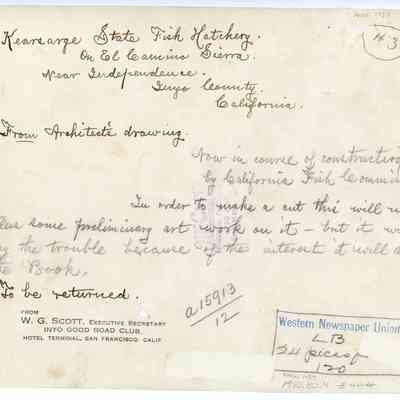 Kearsarge State Fish Hatchery.
On El Camino Sierra.
Near Independence.
Inyo County.
California.
43
From Architect's drawing.
Now in course of construction
by California Fish Commis
In order to make a cut this will
some preliminary art work on it – but it
the trouble because of the interest it will
Book.
To be returned.
a15913
12
FROM
W. G. SCOTT, EXECUTIVE SECRETARY
INYO GOOD ROAD CLUB.
HOTEL TERMINAL, SAN FRANCISCO, CALIF.
Western Newspaper Union
LB
120